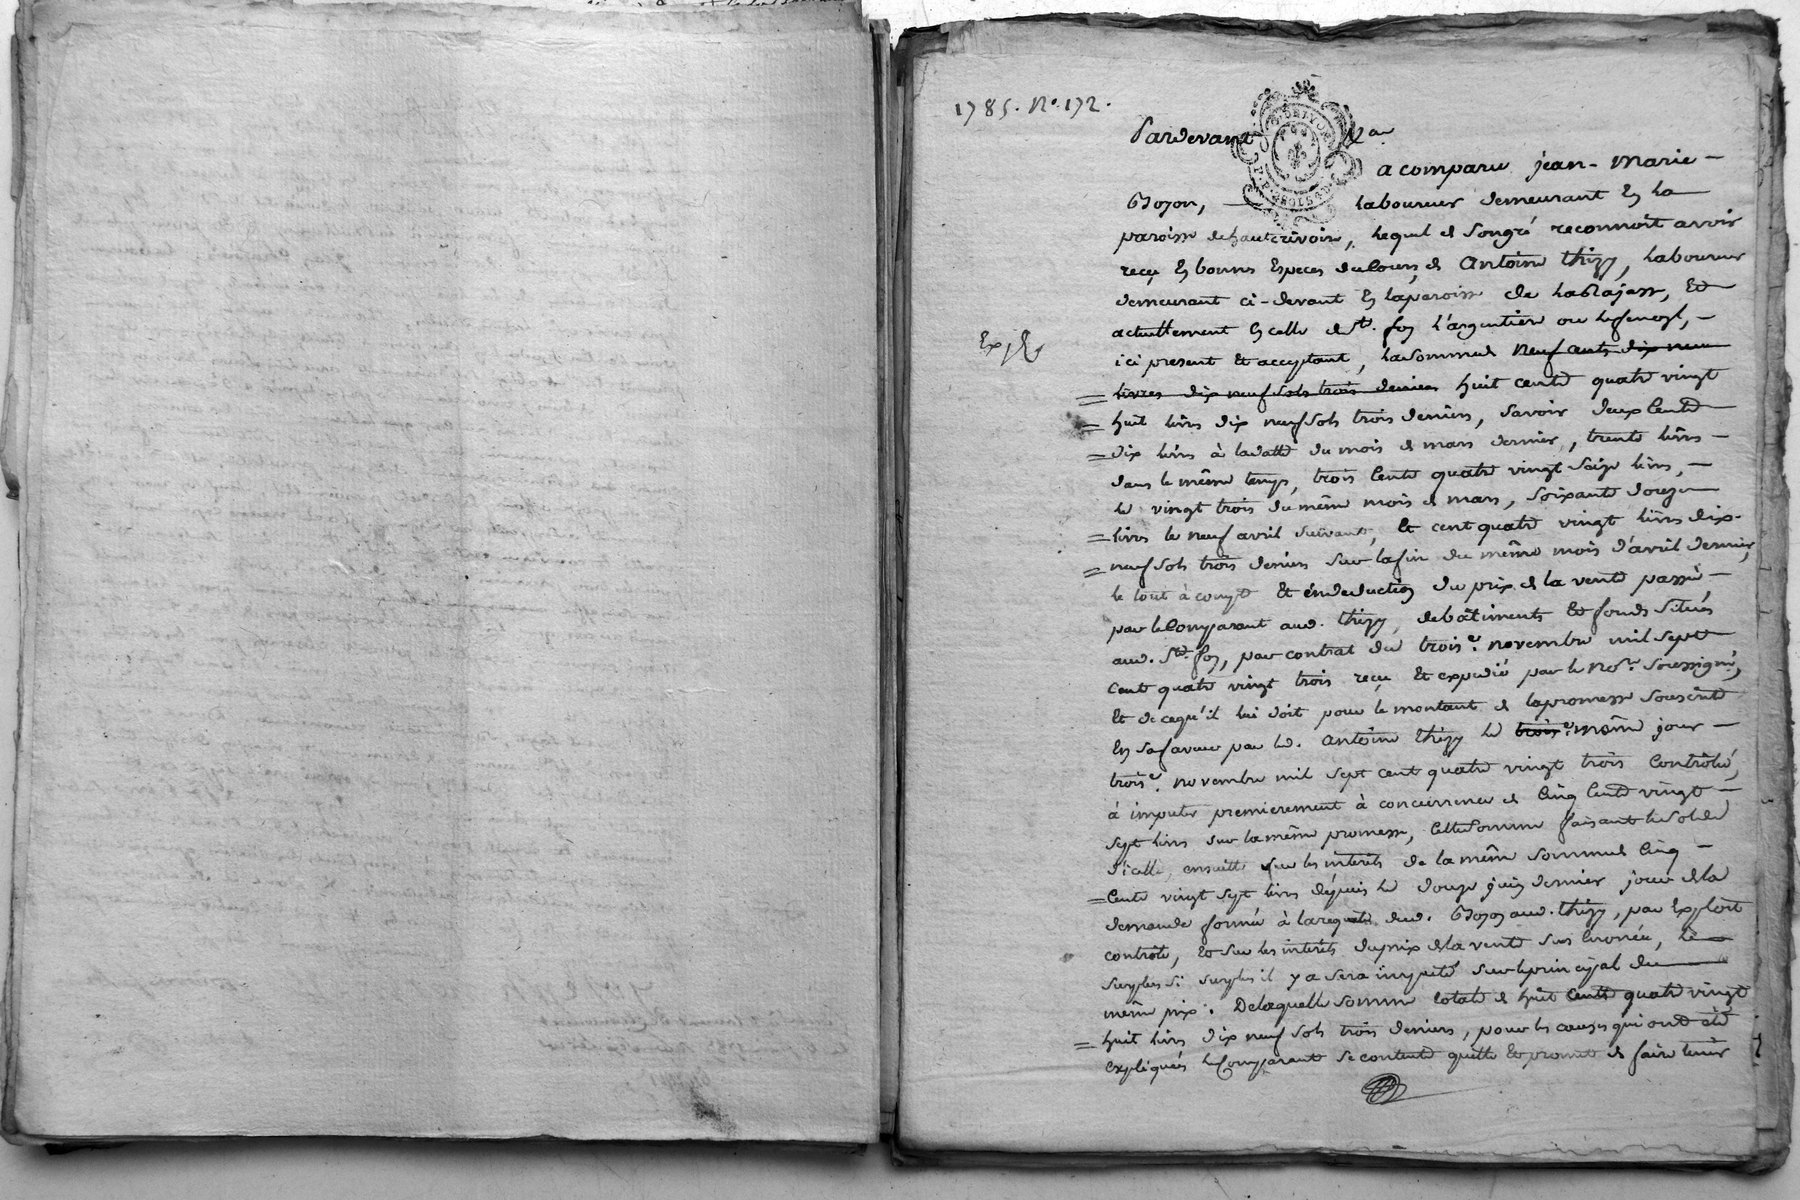 1785. N.º 172.
Pardevant &a.
a comparu jean-Marie-
Bozon, laboureur demeurant En la
paroisse de hauterivoire, lequel de Songré reconnoît avoir
reçu En bonnes Especes du Cours, de Antoine thizy, laboureur
demeurant ci-devant En laparoisse de Lablajasse, Et
actuellement En celle de Ste. foy l'argentiere ou
ici present Et acceptant, lasomme de neuf cents dix neuf
livres dix neuf Sols trois deniers huit cents quatre vingt
huit livres dix neuf Sols trois deniers, Savoir deux Cents
dix livres à ladatte du mois de mars dernier, trente livres
dans le même temps, trois Cents quatre vingt Seize livres,
le vingt trois du même mois de mars, Soixante douze
livres le neuf avril Suivant, Et cent quatre vingt livres dix-
neuf Sols trois deniers Sur lafin du même mois d'avril dernier,
le tout à compte Et en deduction du prix de la vente passée
par le Comparant aud. thizy, de bâtiments Et fonds Situés
aud. Ste. foy, par contrat du trois.e novembre mil Sept
Cent quatre vingt trois reçu Et expedié par le No.re Soussigné,
Et de cequ'il lui doit pour le montant de lapromesse Souscrite
En Safaveur par led. Antoine thizy le trois.e même jour
trois.e novembre mil Sept cent quatre vingt trois Contrôlée,
à imputer premierement à concurrence de Cinq Cents vingt
Sept livres Sur la même promesse, Cette Somme faisant le Solde
d'icelle, ensuitte Sur les interêts de la même Somme de Cinq
Cents vingt Sept livres depuis le douze juin dernier jour de la
demande formée à larequete dud. Bozon aud. thizy, par Exploit
contrôlé, Et Sur les interêts duprix de la vente Sus Enoncée, le
Surplus Si Surplus il y a Sera imputé Sur leprincipal du
même prix. De laquelle Somme totale de huit Cents quatre vingt
huit livres dix neuf Sols trois deniers, pour les causes qui ont été
expliquées le Comparant Se contente quitte Et promet de faire tenir